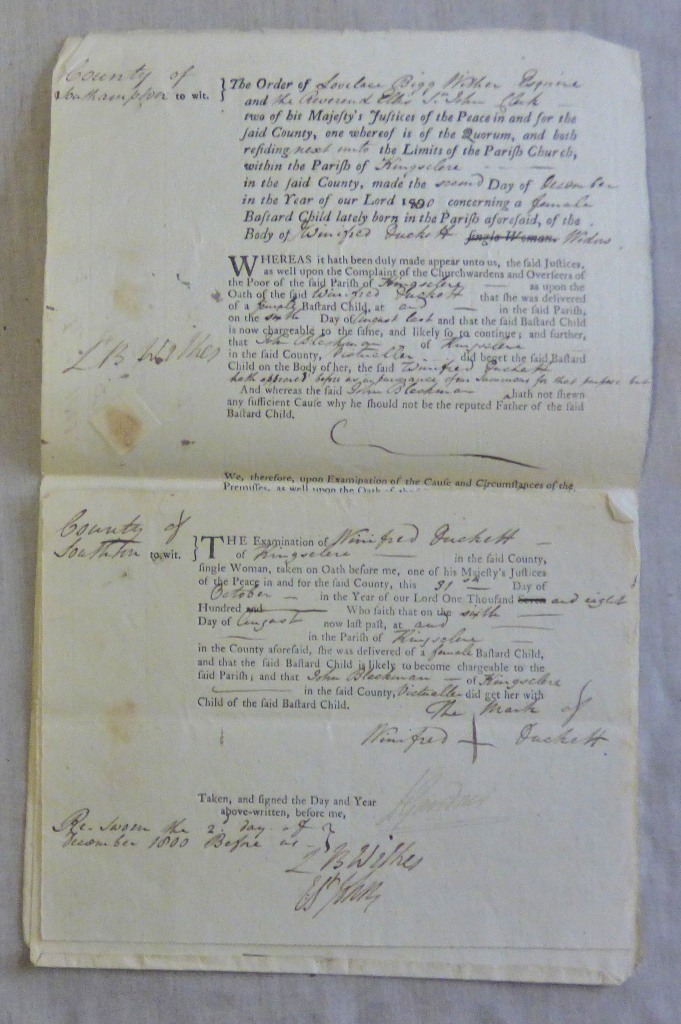 County of
Southampton to wit.
The Order of Lovelace Bigg Wither Esquire
and the Reverend Ellis St. John Clerk
two of his Majesty's Justices of the Peace in and for the
said County, one whereof is of the Quorum, and both
residing next unto the Limits of the Parish Church,
within the Parish of Kingsclere
in the said County, made the second Day of December
in the Year of our Lord 1800 concerning a female
Bastard Child lately born in the Parish aforesaid, of the
Body of Winifred Duckett single Woman. Widow.
WHEREAS it hath been duly made appear unto us, the said Justices,
as well upon the Complaint of the Churchwardens and Overseers of
the Poor of the said Parish of Kingsclere as upon the
Oath of the said Winifred Duckett that she was delivered
of a female Bastard Child, at and in the said Parish,
on the sixth Day of August last and that the said Bastard Child
is now chargeable to the same, and likely so to continue; and further,
that John Blackman of Kingsclere
in the said County, Victualler did beget the said Bastard
Child on the Body of her, the said Winifred Duckett
hath appeared before us in pursuance of our Summons for that purpose but
And whereas the said John Blackman hath not shewn
any sufficient Cause why he should not be the reputed Father of the said
Bastard Child.
L B Wither
We, therefore, upon Examination of the Cause and Circumstances of the
Premisses, as well upon the Oath of the
County of
Southton to wit.
THE Examination of Winifred Duckett
of Kingsclere in the said County,
single Woman, taken on Oath before me, one of his Majesty's Justices
of the Peace in and for the said County, this 31st Day of
October in the Year of our Lord One Thousand Seven and eight
Hundred and Who saith that on the sixth
Day of August now last past, at and
in the Parish of Kingsclere
in the County aforesaid, she was delivered of a female Bastard Child,
and that the said Bastard Child is likely to become chargeable to the
said Parish; and that John Blackman of Kingsclere
in the said County, Victualler did get her with
Child of the said Bastard Child.
The Mark of
Winifred + Duckett
Taken, and signed the Day and Year
above-written, before me,
Re-sworn the 2d. day of
December 1800 Before us
L B Wither
E St John